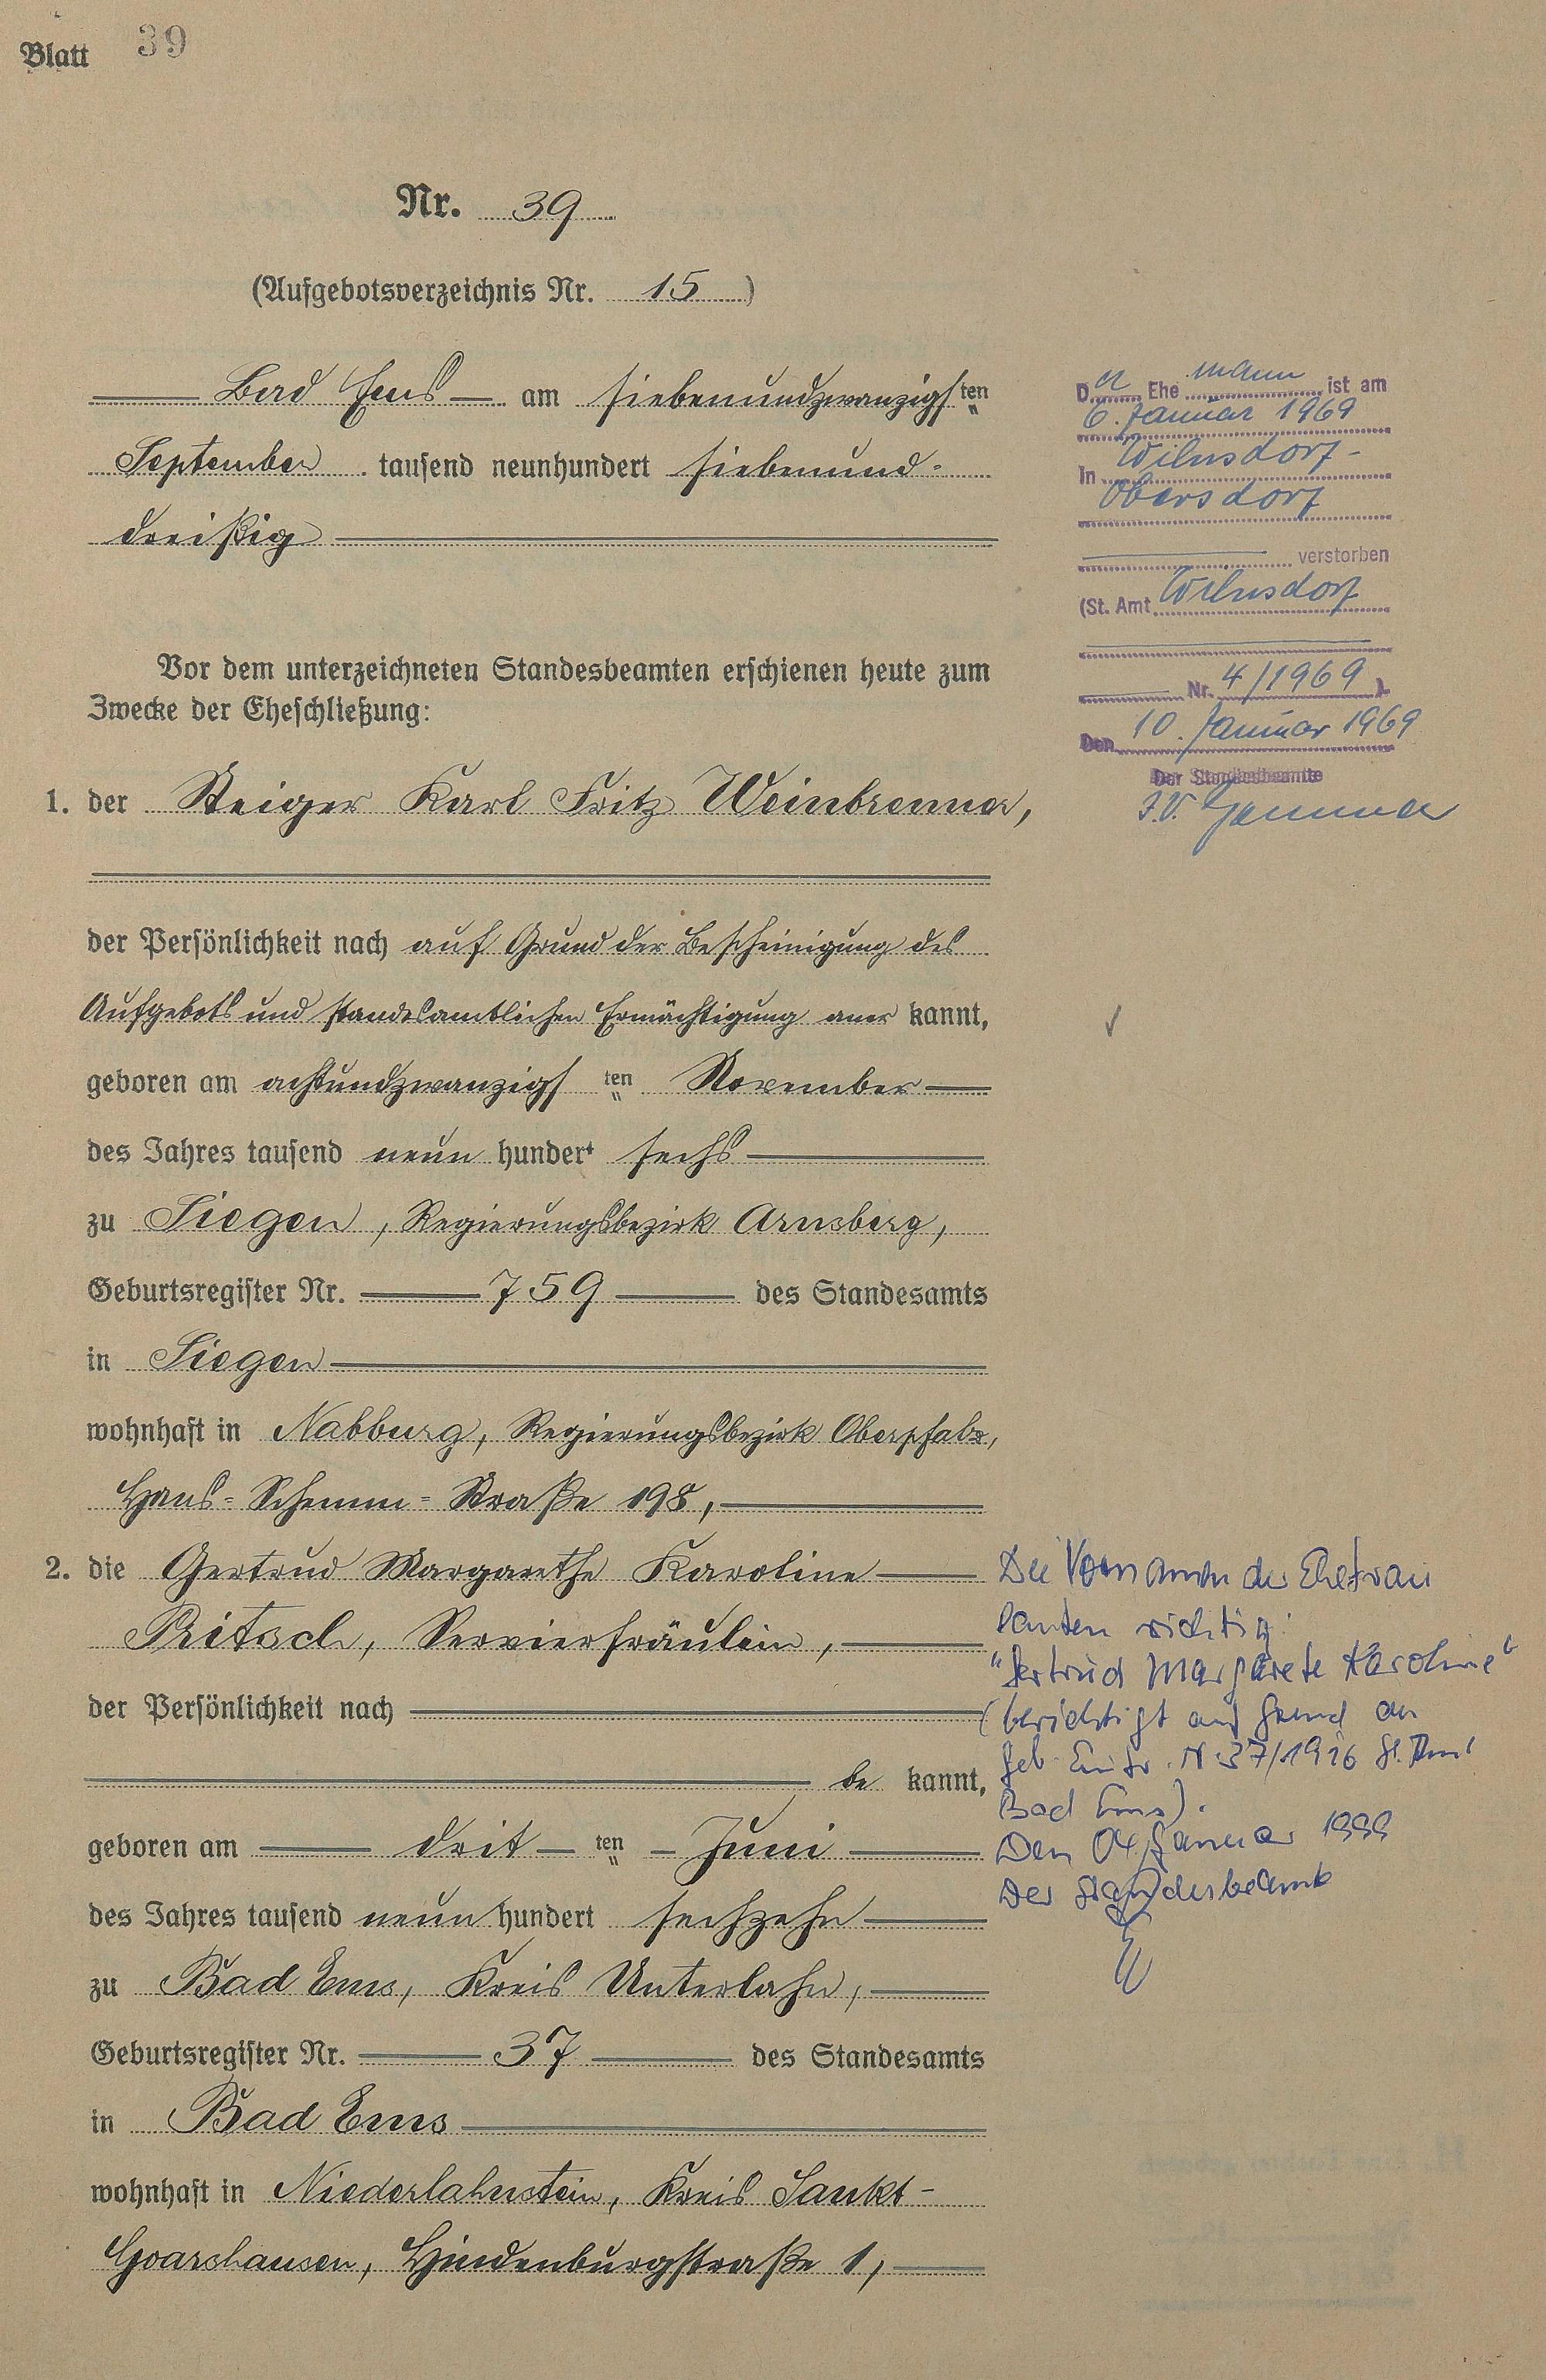 Blatt 39
Nr. 39
(Aufgebotsverzeichnis Nr. 15)
Bad Ems am siebenundzwanzigsten
September tausend neunhundert siebenund-
dreißig
Vor dem unterzeichneten Standesbeamten erschienen heute zum
Zwecke der Eheschließung:
1. der Steiger Karl Fritz Weinbrenner,
der Persönlichkeit nach auf Grund der Bescheinigung des
Aufgebots und standesamtlichen Ermächtigung aner kannt,
geboren am achtundzwanzigsten November
des Jahres tausend neun hundert sechs
zu Siegen, Regierungsbezirk Arnsberg,
Geburtsregister Nr. 759 des Standesamts
in Siegen
wohnhaft in Nabburg, Regierungsbezirk Oberpfalz,
Hans-Schemm-Straße 198,
2. die Gertrud Margarethe Karoline
Pritsch, Servierfräulein,
der Persönlichkeit nach
be kannt,
geboren am dritten Juni
des Jahres tausend neun hundert sechzehn
zu Bad Ems, Kreis Unterlahn,
Geburtsregister Nr. 37 des Standesamts
in Bad Ems
wohnhaft in Niederlahnstein, Kreis Sankt-
Goarshausen, Hindenburgstraße 1,
Der Ehemann ist am
6. Januar 1969
In Wilnsdorf-
Obersdorf
verstorben
(St. Amt Wilnsdorf
Nr. 4/1969)
Den 10. Januar 1969
Der Standesbeamte
I.V.
Die Vornamen der Ehefrau
lauten richtig:
"Gertrud Margarete Karoline"
(berichtigt auf Grund der
Geb. Eintr. Nr. 37/1916 St. Amt
Bad Ems).
Den 04. Januar 1999
Der Standesbeamte